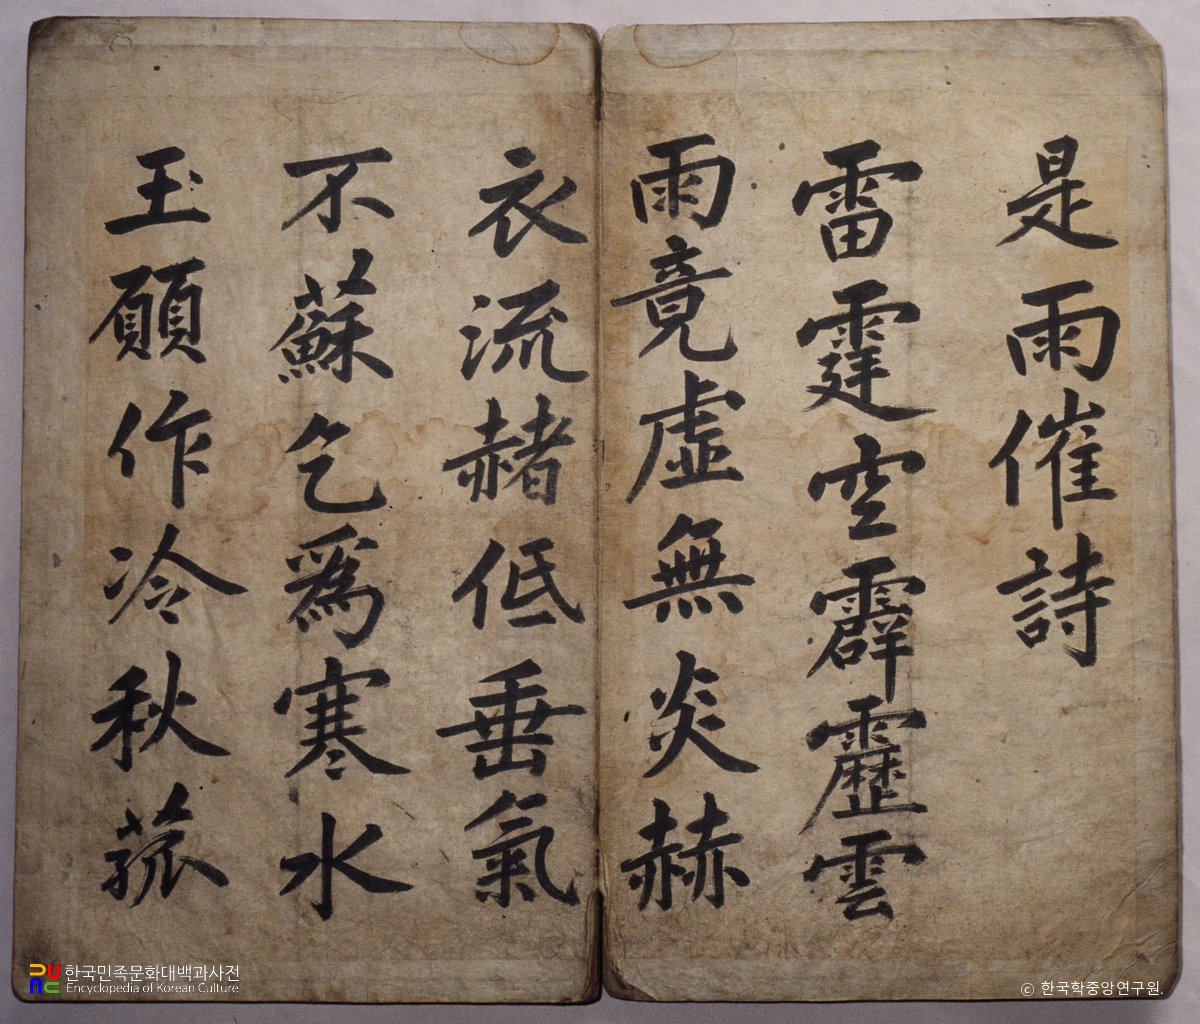 是雨催詩
雷霆空霹靂雲
雨竟虛無炎赫
衣流赭低垂氣
不蘇乞爲寒水
玉願作冷秋菰
한국민족문화대백과사전
Encyclopedia of Korean Culture
ⓒ 한국학중앙연구원.